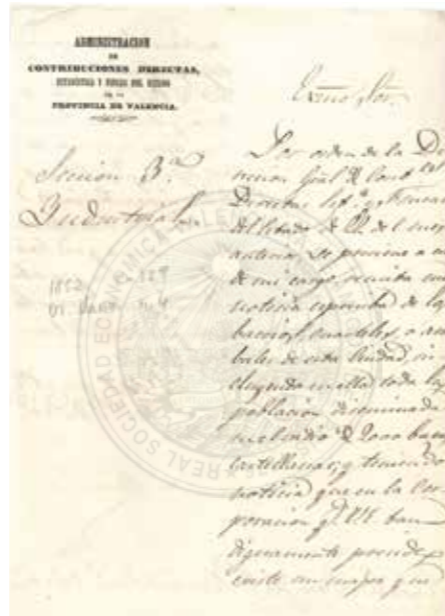 ADMINISTRACION
DE
CONTRIBUCIONES DIRECTAS,
ESTADISTICA Y FINCAS DEL ESTADO
DE LA
PROVINCIA DE VALENCIA.
Seccion 3ª
Industrial
1852
Exmo Sor.
Por orden de la Di
reccion Gral de Cont.
Directas
anterior, se previene a
de mi cargo, remita una
noticia espresiva de los
barrios, cuarteles, o
de esta Ciudad, in
cluyendo en ella toda la
poblacion diseminada
2000
Castellanas; y teniendo
noticia que en la Cor
poracion q. V.E. tan
dignamente preside
existe un mejor que
REAL SOCIEDAD ECONOMICA VALEN